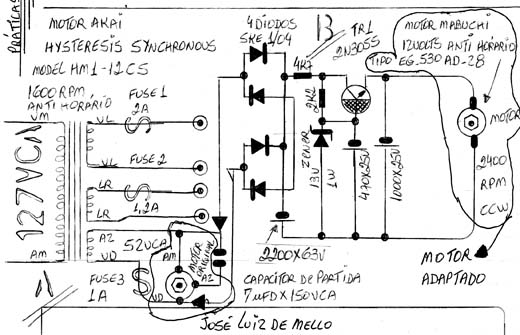 PRÁTICAS
MOTOR AKAI
HYSTERESIS SYNCHRONOUS
MODEL HM1-12CS
1600 RPM,
ANTI HORARIO
VM
127VCA
AM
FUSE 1
2A
VL
VL
FUSE 2
LR
LR
1,2A
AZ
VD
52VCA
FUSE3
1A
AM
MOTOR
ORIGINAL
AZ
VD
4 DIODOS
SKE 1/04
13
4K7
TR1
2N3055
2K2
ZENER
13V
1W
470X25V
1000X25V
2200X63V
CAPACITOR DE PARTIDA
7µFDX150VCA
MOTOR MABUCHI
12VOLTS ANTI HORÁRIO
TIPO EG.530AD-28
MOTOR
2400
RPM
CCW
MOTOR
ADAPTADO
11
JOSÉ LUIZ DE MELLO